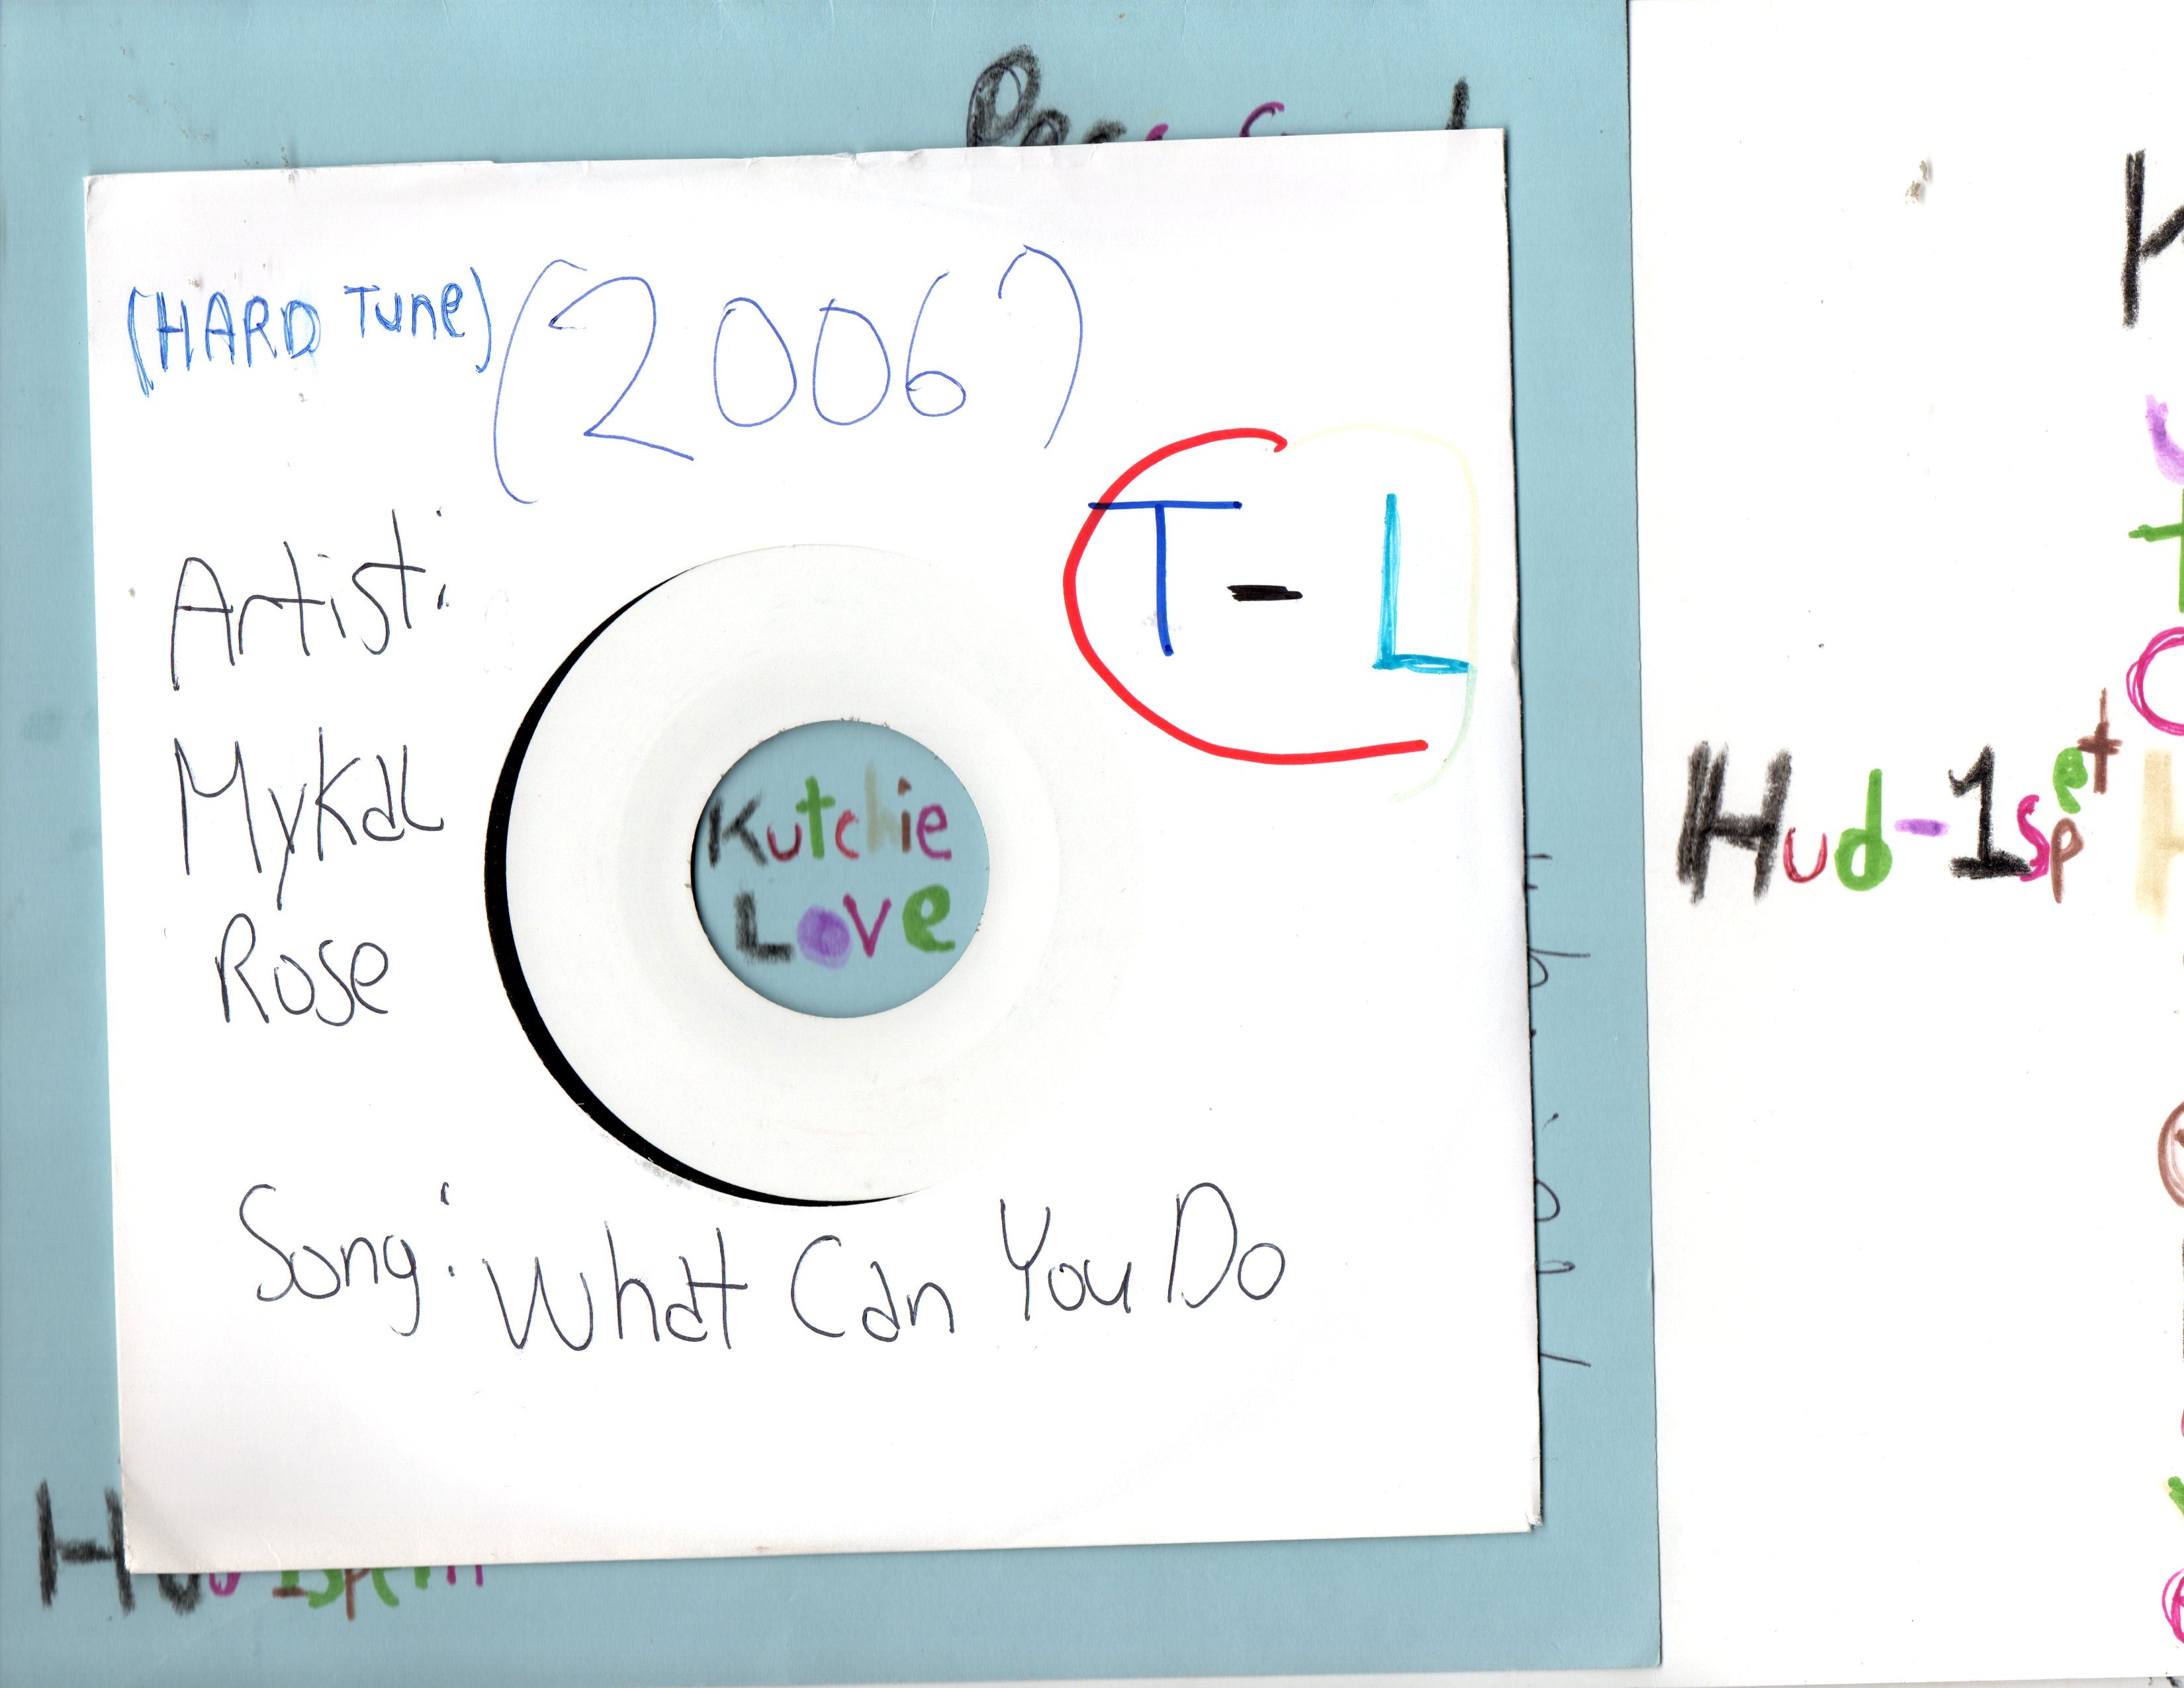 (HARD Tune) (2006)
T-L
Artist:
Mykal
Rose
Kutchie
Love
Song: What Can You Do
Hud-1spet